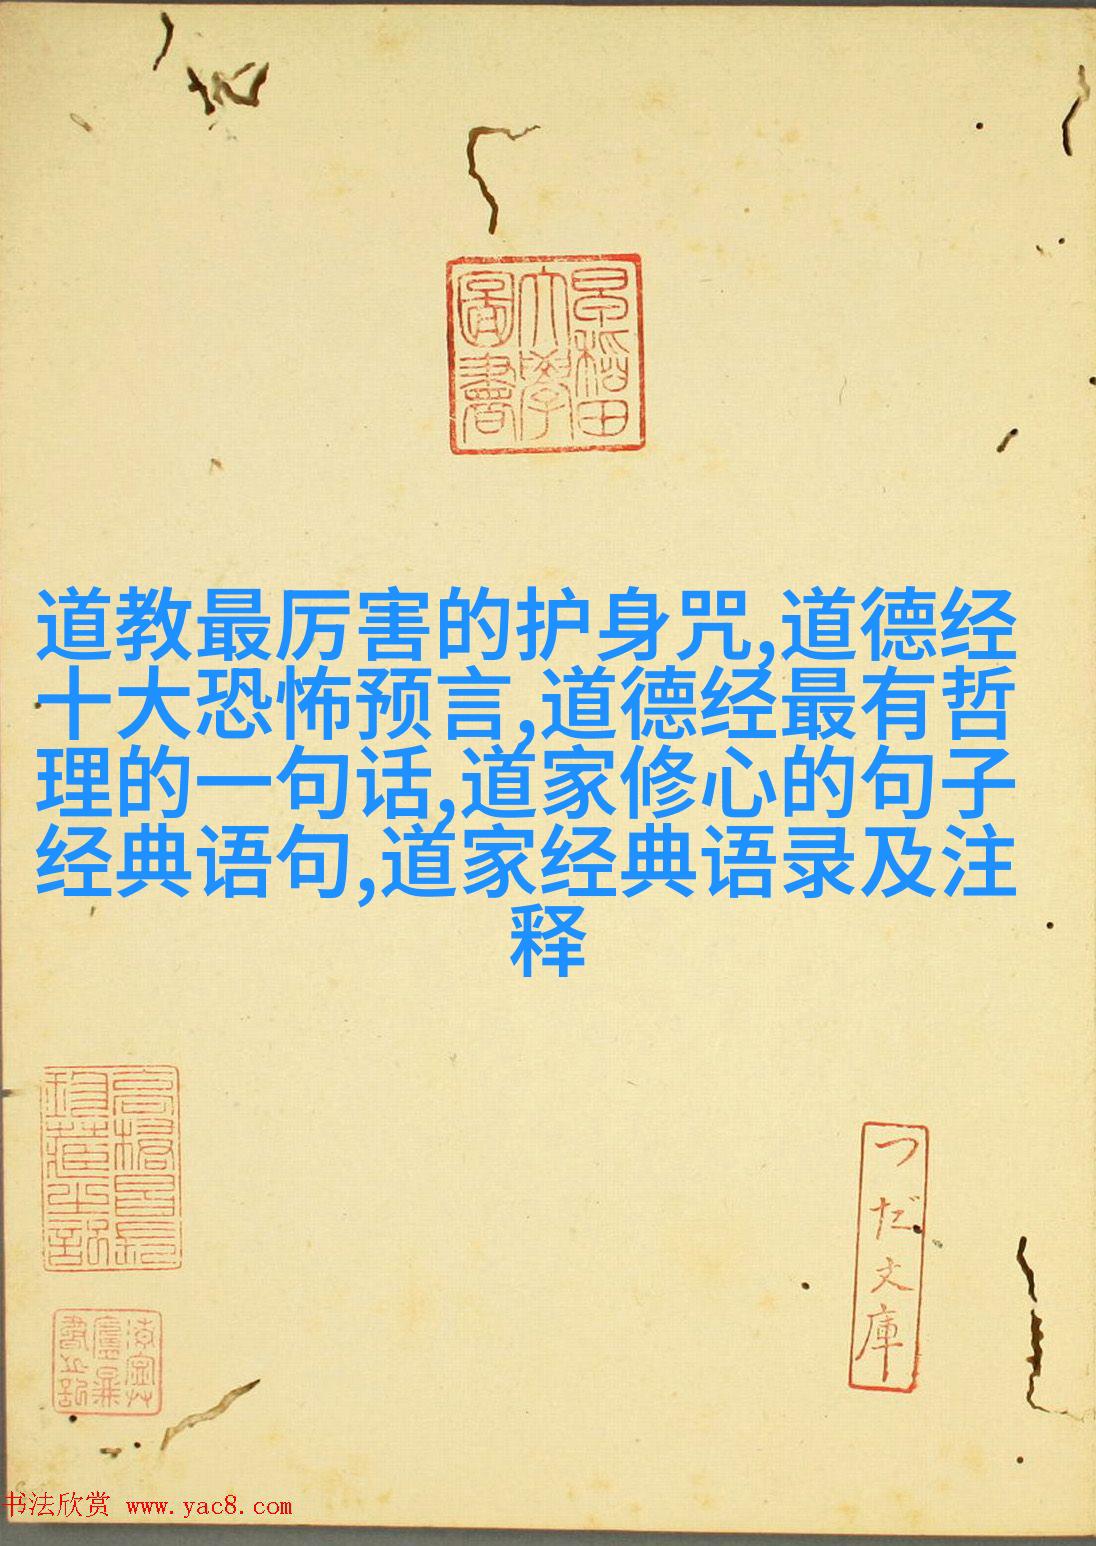 早稲田
大學
圖書
道教最厉害的护身咒,道德经
十大恐怖预言,道德经最有哲
理的一句话,道家修心的句子
经典语句,道家经典语录及注
释
つだ文庫
书法欣赏 www.yac8.com